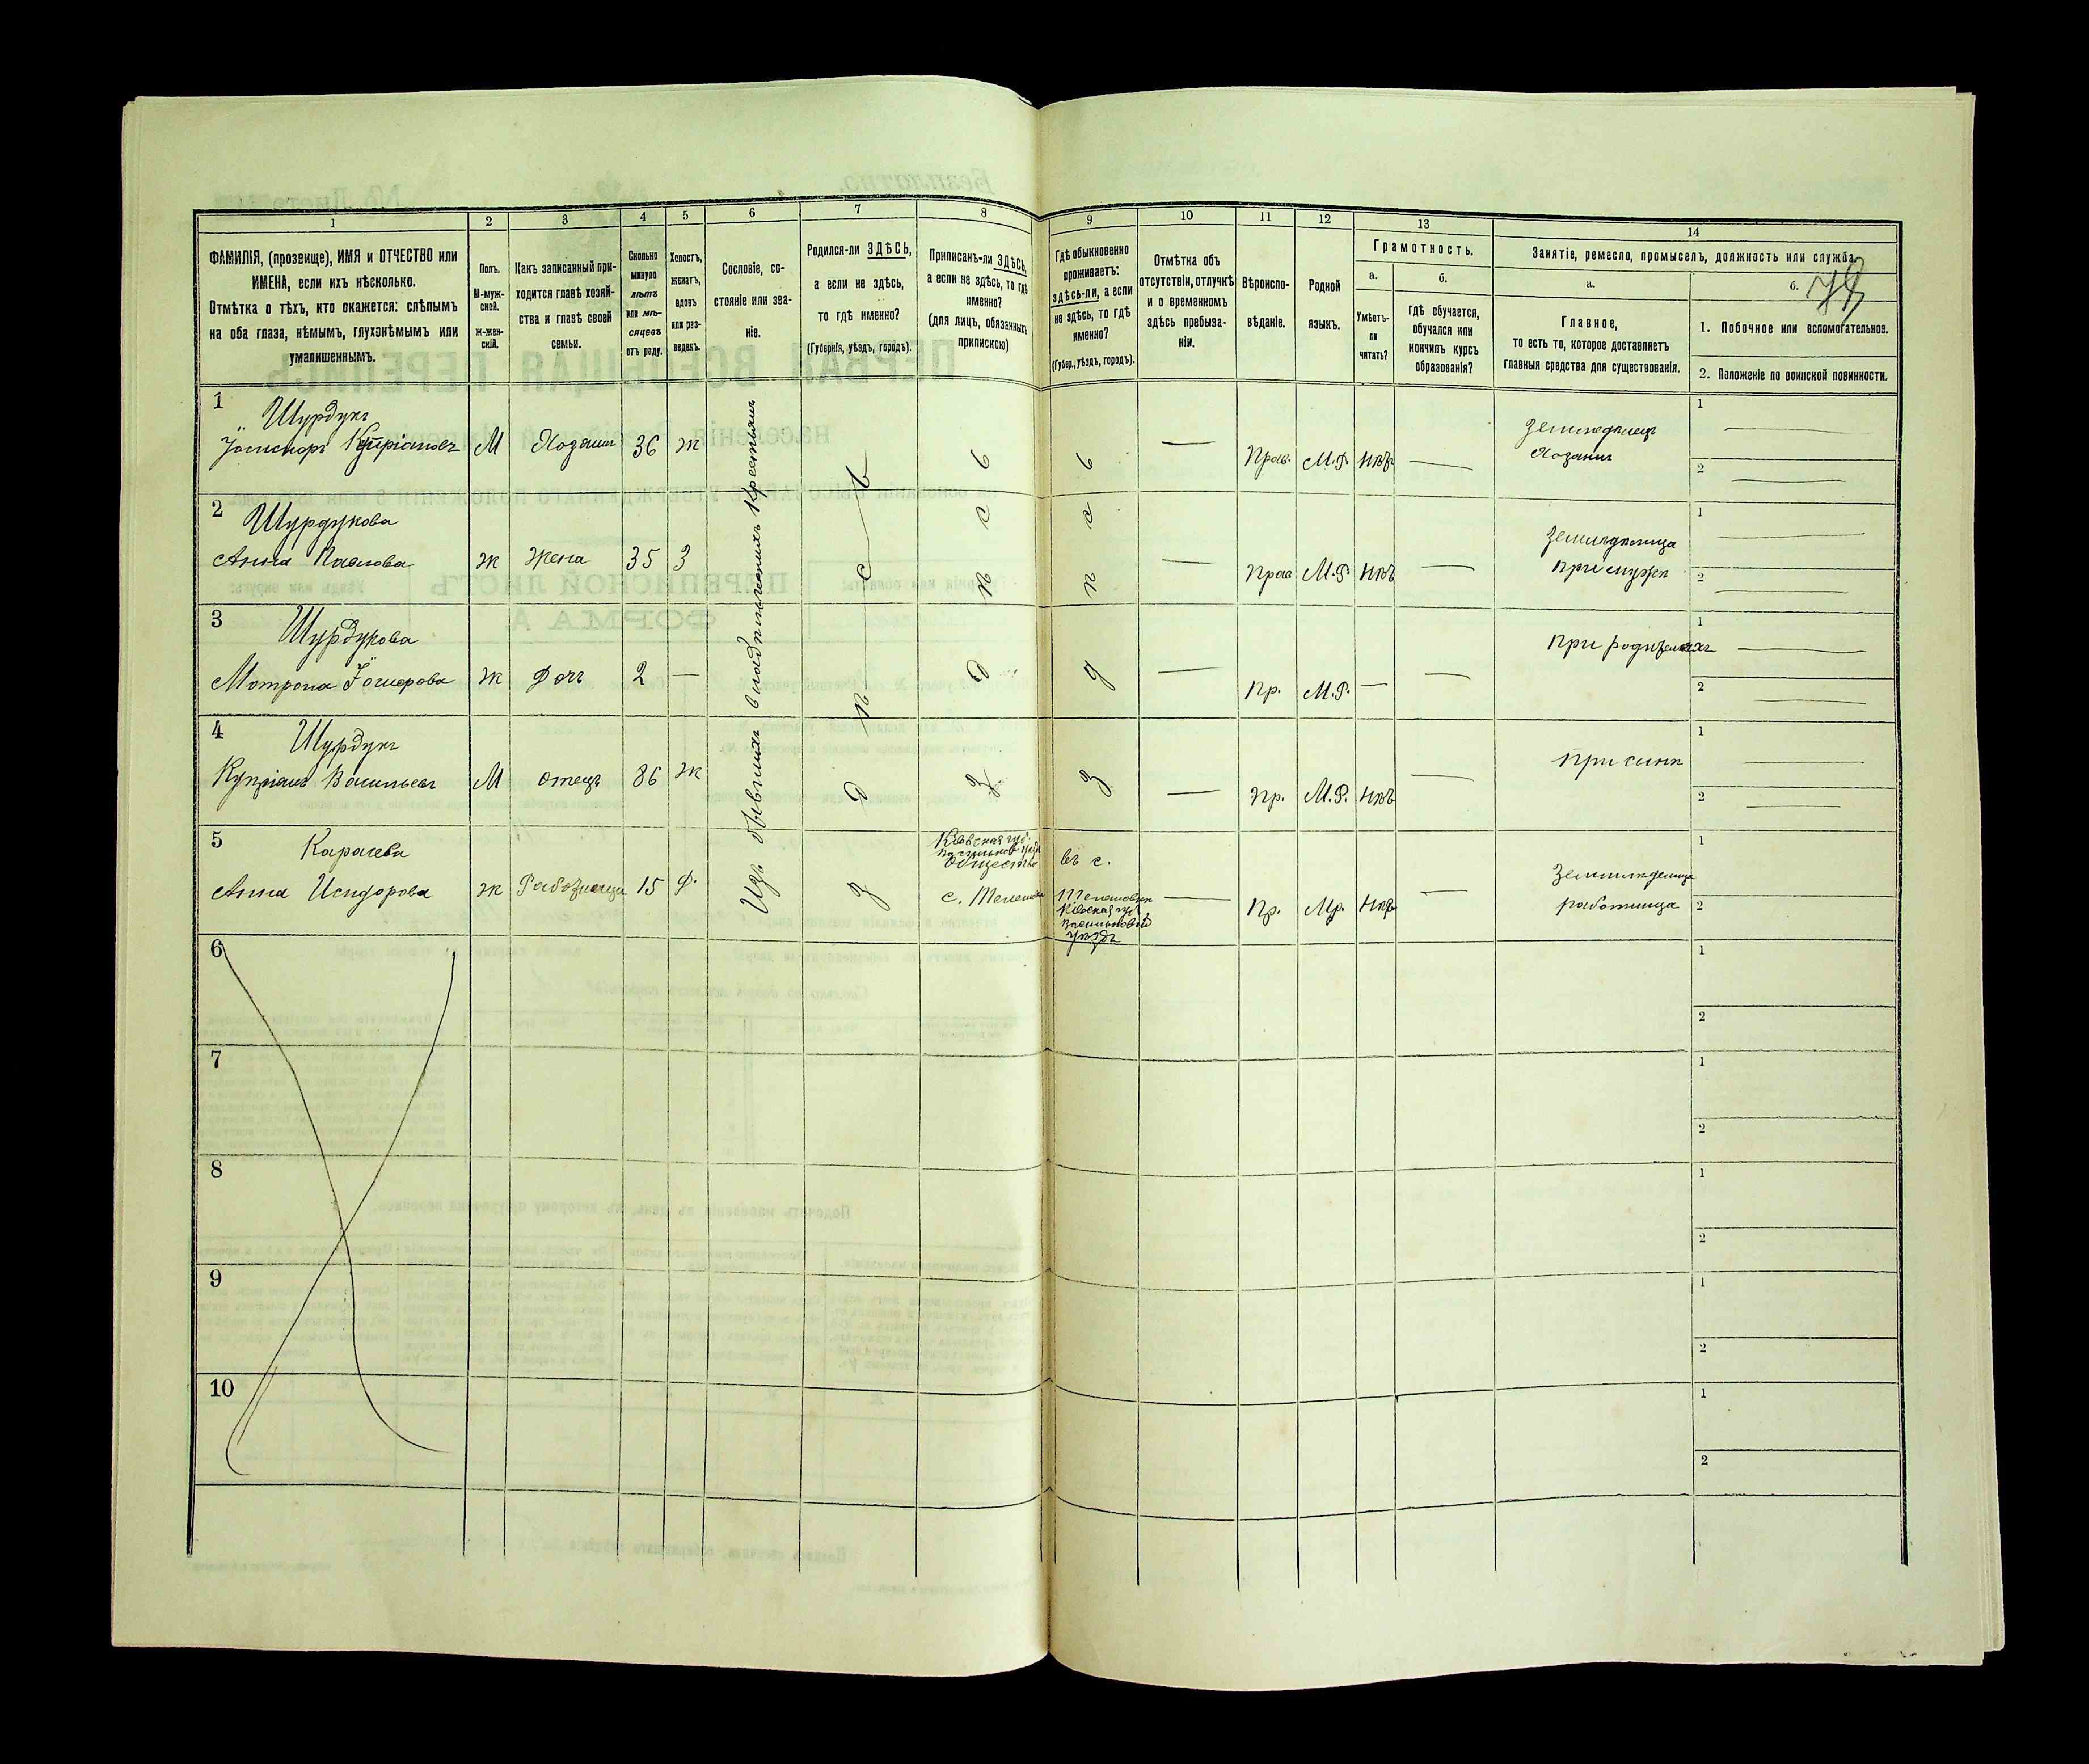 1
2
3
4
5
6
7
8
9
10
11
12
13
14
ФАМИЛІЯ, (прозвище), ИМЯ и ОТЧЕСТВО или
ИМЕНА, если ихъ нѣсколько.
Отмѣтка о тѣхъ, кто окажется: слѣпымъ
на оба глаза, нѣмымъ, глухонѣмымъ или
умалишеннымъ.
Полъ.
М-муж-
ской.
Ж-жен-
скій.
Какъ записанный при-
ходится главѣ хозяй-
ства и главѣ своей
семьи.
Сколько
минуло
лѣтъ
или мѣ-
сяцевъ
отъ роду.
Холостъ,
женатъ,
вдовъ
или раз-
веденъ.
Сословіе, со-
стояніе или зва-
ніе.
Родился-ли ЗДѢСЬ,
а если не здѣсь,
то гдѣ именно?
(Губернія, уѣздъ, городъ).
Приписанъ-ли ЗДѢСЬ,
а если не здѣсь, то гдѣ
именно?
(для лицъ, обязанныхъ
припискою)
Гдѣ обыкновенно
проживаетъ:
здѣсь-ли, а если
не здѣсь, то гдѣ
именно?
(Губер., уѣздъ, городъ).
Отмѣтка объ
отсутствіи, отлучкѣ
и о временномъ
здѣсь пребыва-
ніи.
Вѣроиспо-
вѣданіе.
Родной
языкъ.
Грамотность.
а.
Умѣетъ-
ли
читать?
б.
Гдѣ обучается,
обучался или
кончилъ курсъ
образованія?
Занятіе, ремесло, промыселъ, должность или служба.
а.
Главное,
то есть то, которое доставляетъ
главныя средства для существованія.
б.
1. Побочное или вспомогательное.
2. Положеніе по воинской повинности.
1
Шурдукъ
Купріановъ М Хозяинъ 36 ж — Прав. М.Р. Нѣтъ — Земледѣлецъ
Хозяинъ
1
2
2
Шурдукова
Анна Павлова ж Жена 35 З — Прав М.Р. Нѣтъ — Земледѣлица
При мужѣ
1
2
3
Шурдукова
Мотрона ж Дочь 2 — — Пр. М.Р. — — При родителяхъ
1
2
4
Шурдукъ
Купріанъ Васильевъ М Отецъ 86 ж — Пр. М.Р. Нѣтъ — При сынѣ
1
2
Изъ бывшихъ владѣльческихъ Крестьянъ
5
Карачева
Анна Исидорова ж Работница 15 Д. Кіевская губ.
Общество
въ с.
Кіевская губ.
уѣздъ
— Пр. Мр. Нѣтъ — Земледѣлица
работница
1
2
6
1
2
7
1
2
8
1
2
9
1
2
10
1
2